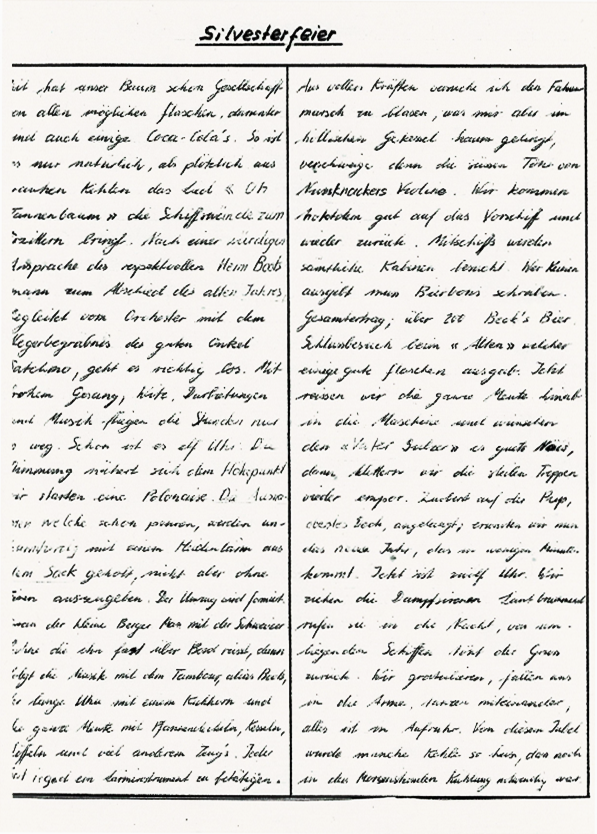 Silvesterfeier
hat unser Baum schon Gesellschaft
allen möglichen flaschen, darunter
auch einige Coca-Cola's. So ist
nur natürlich, als plötzlich aus
rauhen Kehlen das Lied « Oh
Tannenbaum » die Schiffswände zum
erzittern bringt. Nach einer würdigen
Ansprache des respektvollen Herrn Boots
mann zum Abschied des alten Jahres,
begleitet vom Orchester mit dem
des guten Onkel
geht es richtig los. Mit
frohem Gesang, Witz, Darbietungen
und Musik fliegen die Stunden nur
so weg. Schon ist es elf Uhr. Die
Stimmung nähert sich dem Höhepunkt
wir starten eine Polonaise. Die
welche schon pennen, werden
mit einem Heidenlärm aus
dem Sack geholt, nicht aber ohne
auszugeben. Der Umzug wird formiert.
der kleine Berger Man mit der Schweizer
Fahne die ihn fast über Bord reisst, dann
folgt die Musik mit dem Tambour, alias Boots,
lange Uhu mit einem Kuhhorn und
die ganze Meute mit Pfannendeckeln, Kesseln,
Löffeln und viel anderem Zeug's. Jeder
hat irgend ein Lärminstrument zu betätigen.
Aus vollen Kräften versuche ich den Fahnen
marsch zu blasen, was mir aber im
höllischen Gekessel kaum gelingt,
geschweige denn die süssen Töne von
Nussknackers Violine. Wir kommen
trotzdem gut auf das Vorschiff und
wieder zurück. Mitschiffs werden
sämtliche Kabinen besucht. Wer keinen
ausgibt muss Bierbons schreiben.
Gesamtertrag; über 200 Beck's Bier.
Schlussbesuch beim « Alten » welcher
einige gute flaschen ausgab. Jetzt
reissen wir die ganze Meute hinab
in die Maschine und wünschen
den ein gutes Neues,
dann klettern wir die steilen Treppen
wieder empor. Zuoberst auf der Poop,
oberstes Deck, angelangt; erwarten wir nun
das neue Jahr, das in wenigen Minuten
kommt. Jetzt ist zwölf Uhr. Wir
ziehen die Dampfsirenen. Lautbrummend
rufen sie in die Nacht, von um-
liegenden Schiffen tönt der Gruss
zurück. Wir gratulieren, fallen uns
in die Arme, tanzen miteinander,
alles ist in Aufruhr. Von diesem Jubel
wurde manche Kehle so heiser, das noch
in den Morgenstunden Kühlung notwendig war.